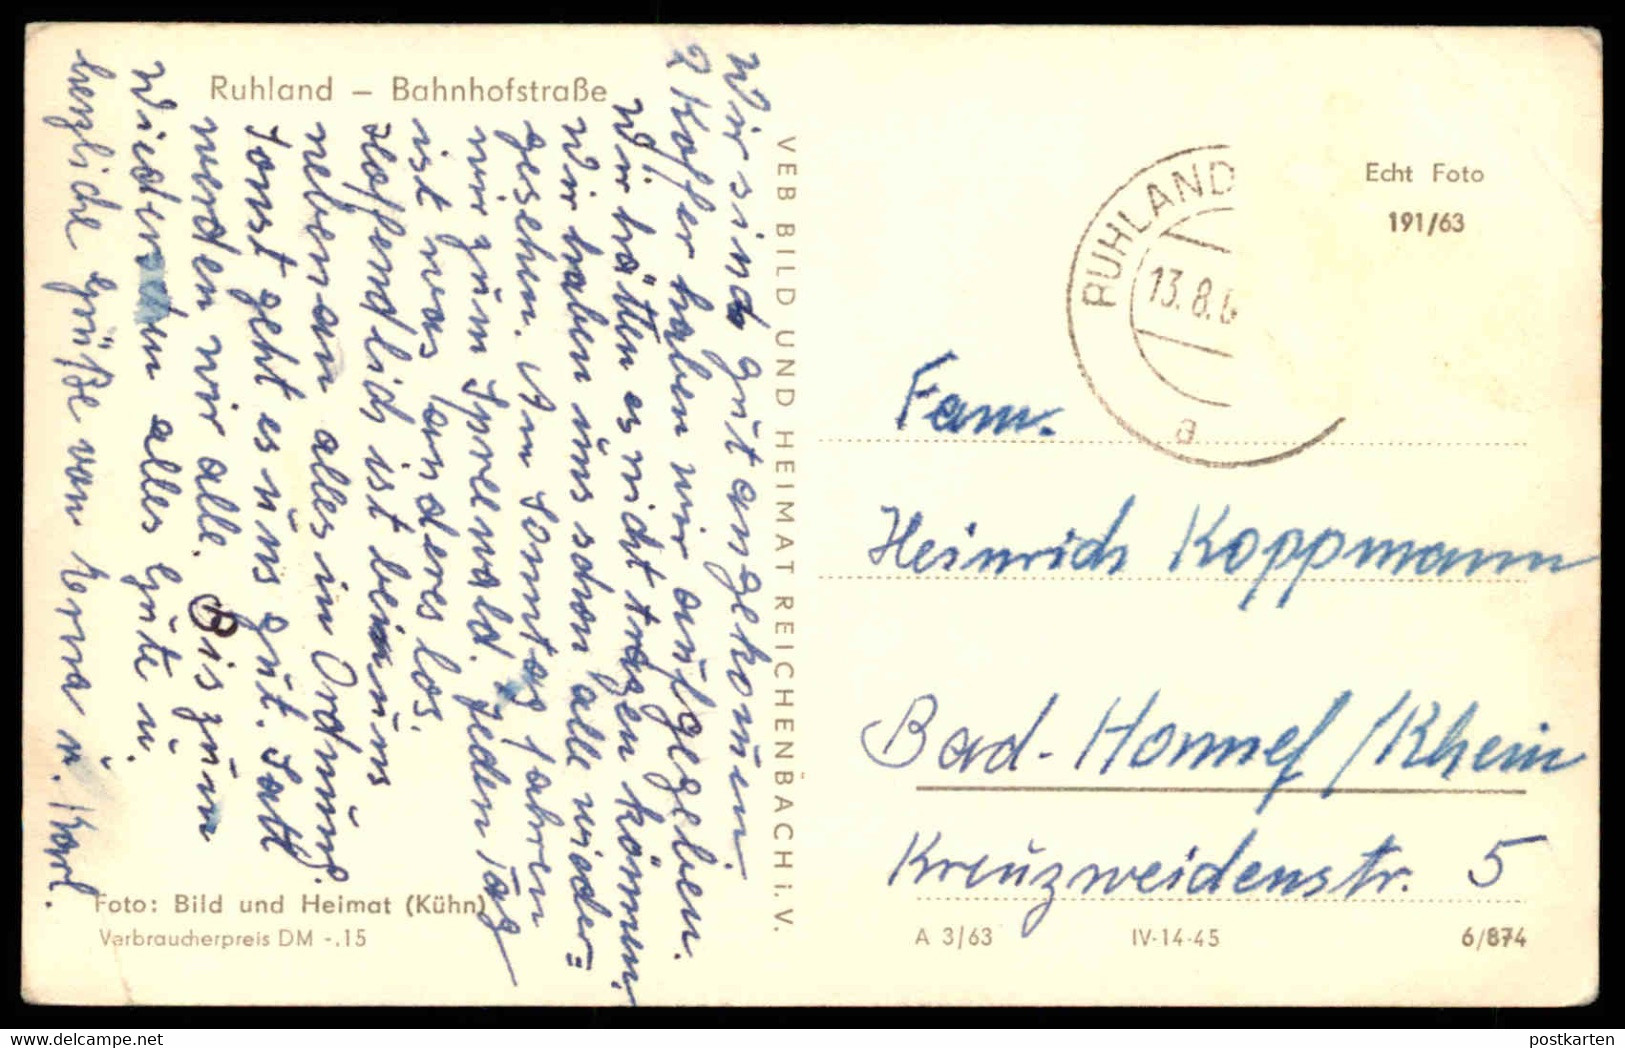 Ruhland – Bahnhofstraße
Wir sind gut angekomen.
2 Koffer haben wir aufgegeben.
Wir hätten es nicht tragen könen.
Wir haben uns schon alle wieder=
gesehen. Am Sonntag fahren
wir zum Spreewald. Jeden Tag
ist was anderes los.
Hoffendlich ist bei uns
nebenan alles in Ordnung.
Sonst geht es uns gut. Satt
werden wir alle. Bis zum
Wiedersehen alles Gute u.
herzliche Grüße von Erna u. Karl.
Foto: Bild und Heimat (Kühn)
Verbraucherpreis DM -.15
VEB BILD UND HEIMAT REICHENBACH i. V.
RUHLAND
13.8.6
a
Echt Foto
191/63
Fam.
Heinrich Koppmann
Bad-Honnef/Rhein
Kreuzweidenstr. 5
A 3/63 IV-14-45 6/874
postkarten